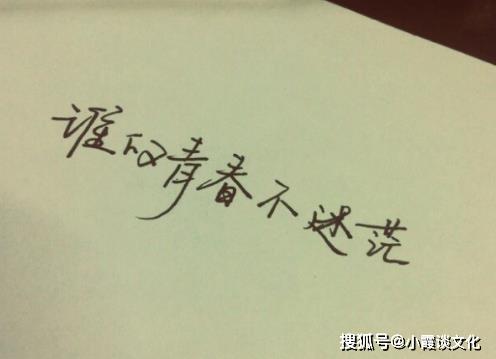 谁的青春不迷茫
搜狐号@小霞谈文化